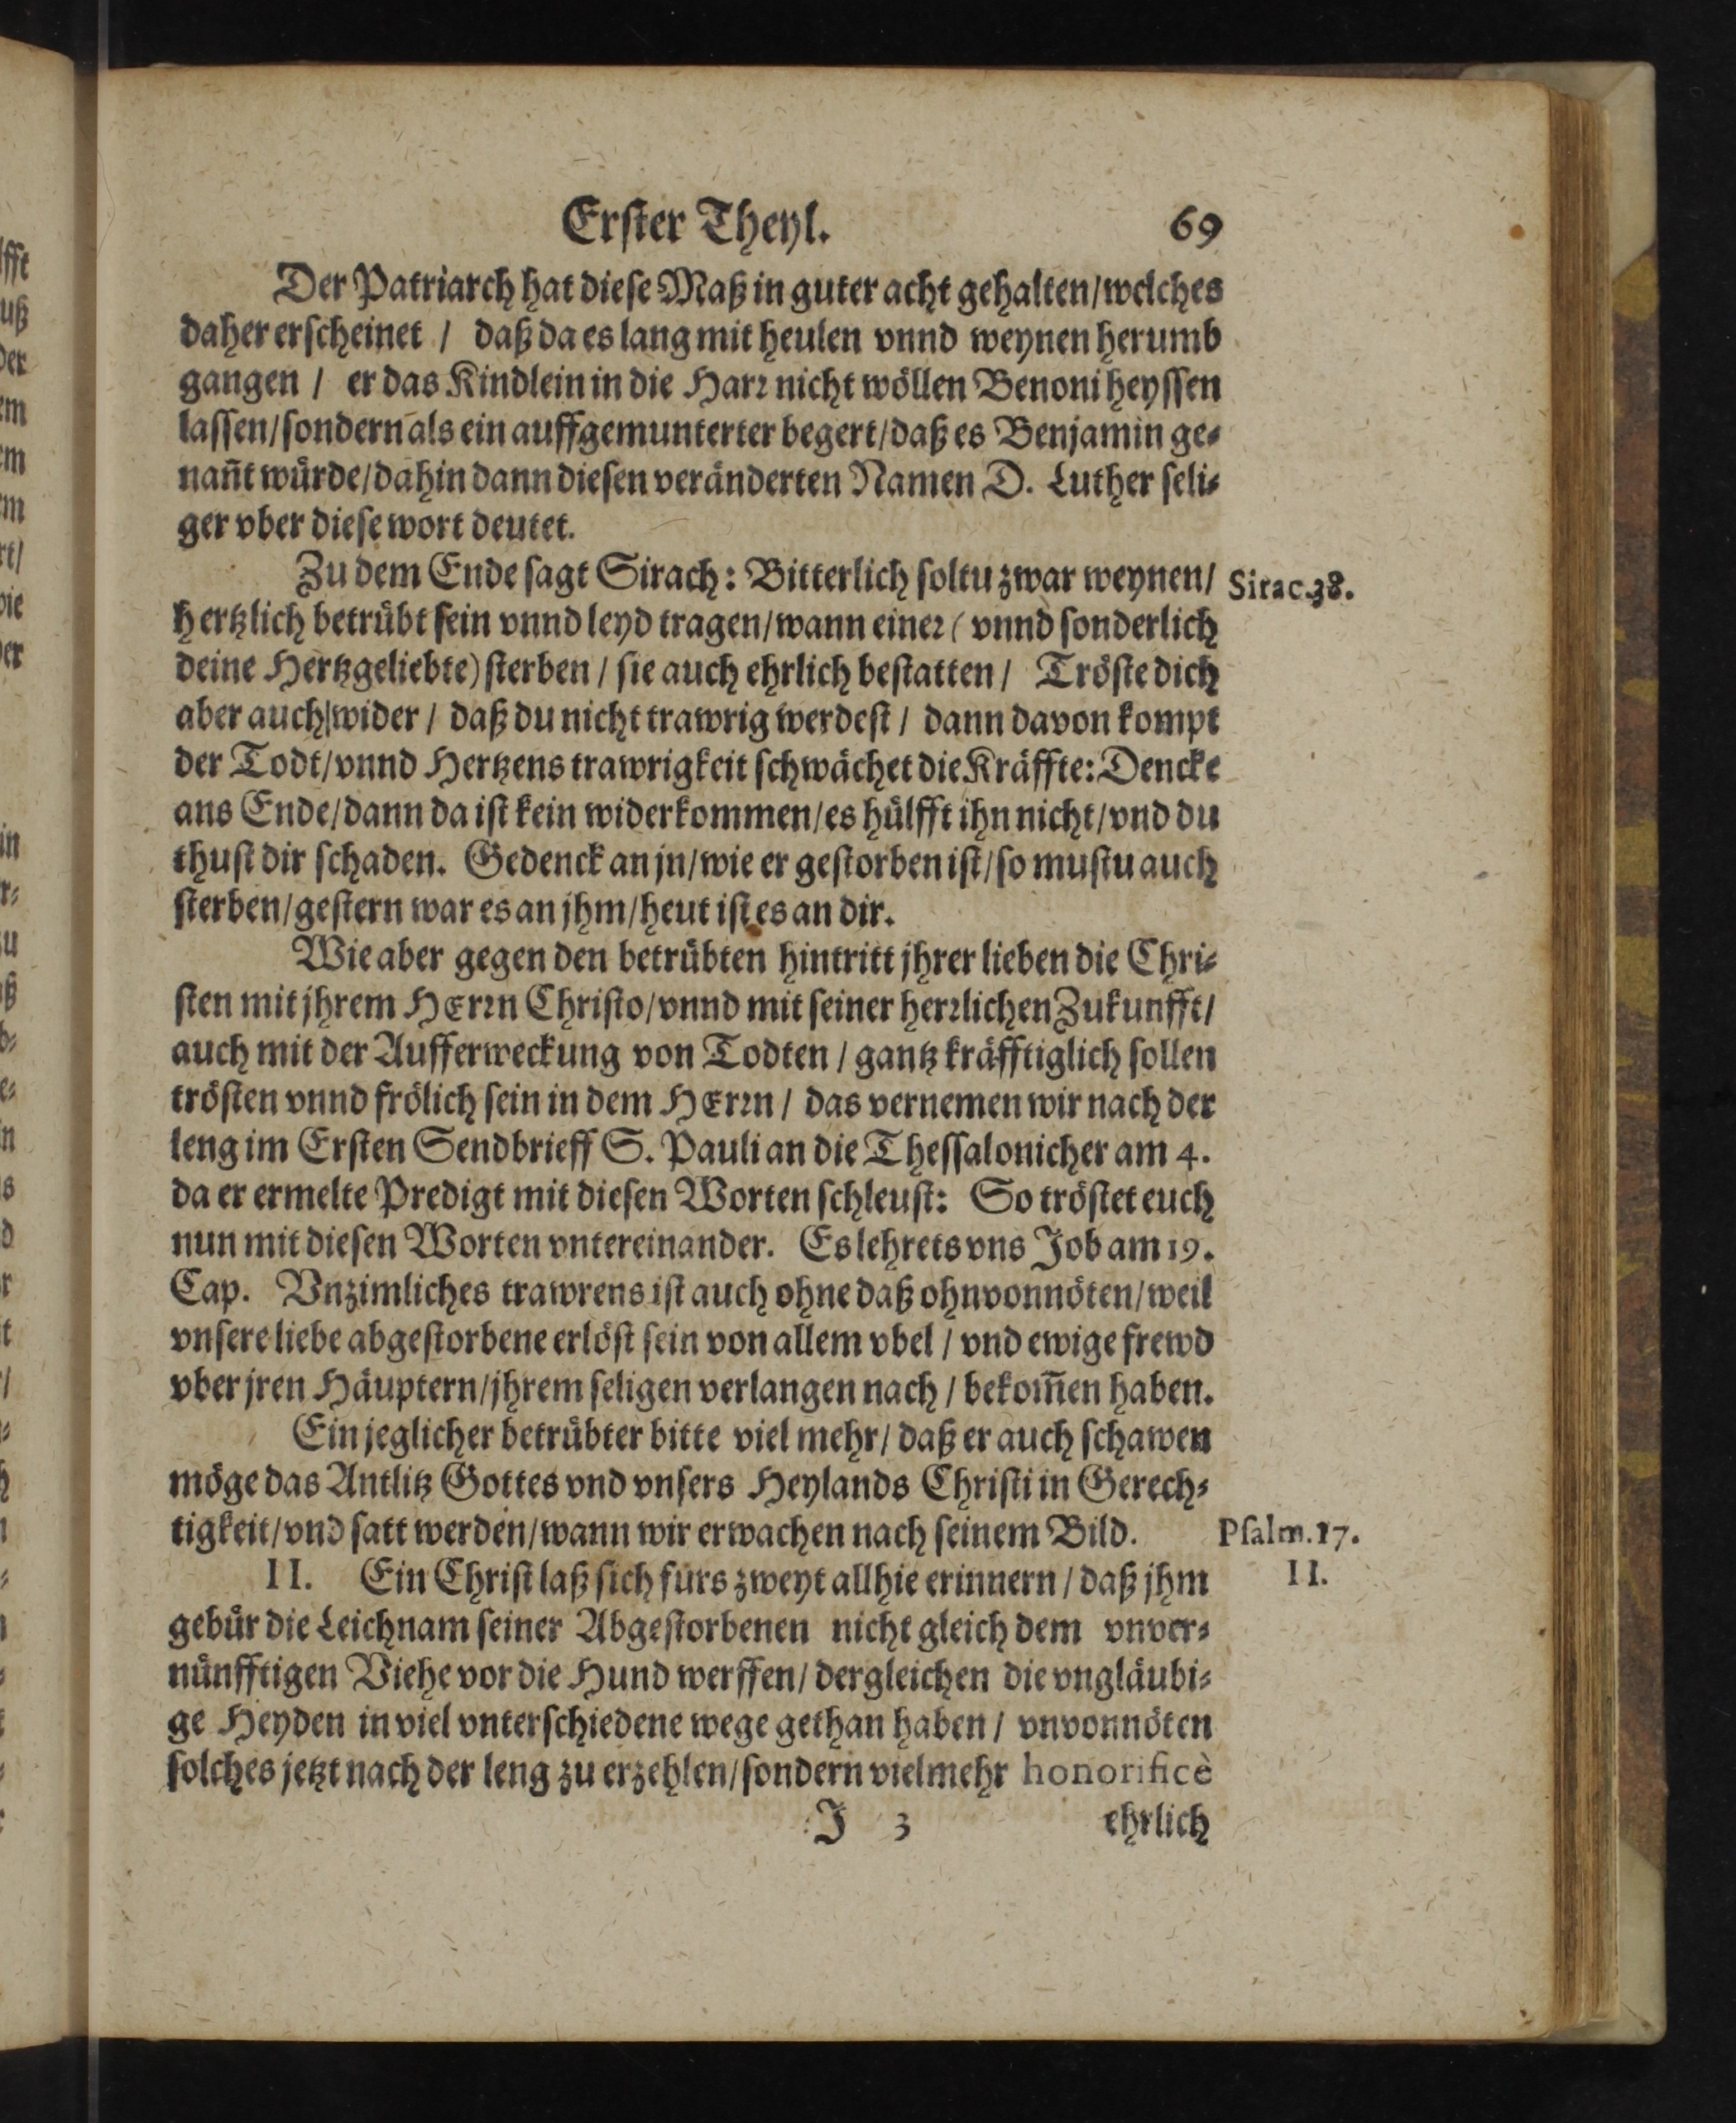 Erster Theyl. 69
Der Patriarch hat diese Maß in guter acht gehalten/welches
daher erscheinet / daß da es lang mit heulen vnnd weynen herumb
gangen / er das Kindlein in die Harr nicht wöllen Benoni heyssen
lassen/sondern als ein auffgemunterter begert/daß es Benjamin ge-
nañt würde/dahin dann diesen veränderten Namen D. Luther seli-
ger vber diese wort deutet.
Zu dem Ende sagt Sirach: Bitterlich soltu zwar weynen/ Sirac.38.
hertzlich betrübt sein vnnd leyd tragen/wann einer (vnnd sonderlich
deine Hertzgeliebte) sterben / sie auch ehrlich bestatten / Tröste dich
aber auch wider / daß du nicht trawrig werdest / dann davon kompt
der Todt/vnnd Hertzens trawrigkeit schwächet die Kräffte: Dencke
ans Ende/dann da ist kein widerkommen/es hülfft ihn nicht/vnd du
thust dir schaden. Gedenck an jn/wie er gestorben ist/so mustu auch
sterben/gestern war es an jhm/heut ist es an dir.
Wie aber gegen den betrübten hintritt jhrer lieben die Chri-
sten mit jhrem HErrn Christo/vnnd mit seiner herrlichen Zukunfft/
auch mit der Aufferweckung von Todten / gantz kräfftiglich sollen
trösten vnnd frölich sein in dem HErrn / das vernemen wir nach der
leng im Ersten Sendbrieff S. Pauli an die Thessalonicher am 4.
da er ermelte Predigt mit diesen Worten schleust: So tröstet euch
nun mit diesen Worten vntereinander. Es lehrets vns Job am 19.
Cap. Vnzimliches trawrens ist auch ohne daß ohnvonnöten/weil
vnsere liebe abgestorbene erlöst sein von allem vbel / vnd ewige frewd
vber jren Häuptern/jhrem seligen verlangen nach / bekom̃en haben.
Ein jeglicher betrübter bitte viel mehr/ daß er auch schawen
möge das Antlitz Gottes vnd vnsers Heylands Christi in Gerech-
tigkeit/vnd satt werden/wann wir erwachen nach seinem Bild. Psalm.17.
II. Ein Christ laß sich fürs zweyt allhie erinnern / daß jhm II.
gebür die Leichnam seiner Abgestorbenen nicht gleich dem vnver-
nünfftigen Viehe vor die Hund werffen/ dergleichen die vngläubi-
ge Heyden in viel vnterschiedene wege gethan haben / vnvonnöten
solches jetzt nach der leng zu erzehlen/sondern vielmehr honorificè
J 3 ehrlich